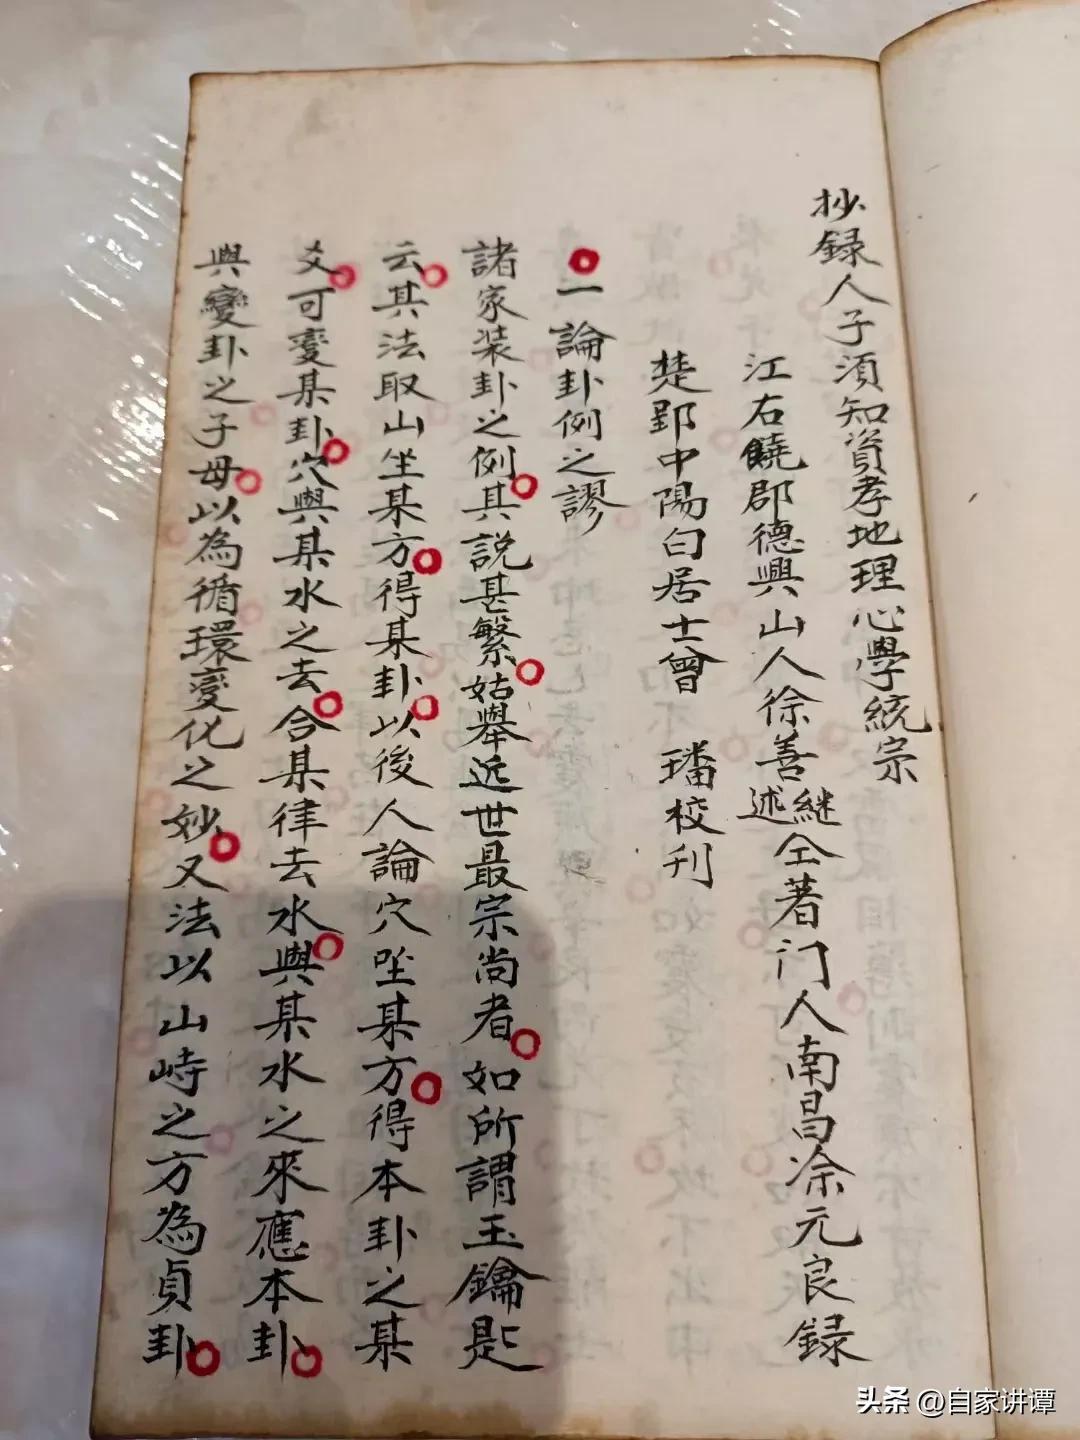 抄録人子須知資孝地理心學統宗
江右饒郡德興山人徐善継述仝著门人南昌涂元良録
楚郢中陽白居士曾璠校刊
一論卦例之謬
諸家装卦之例其説甚繁姑舉近世最宗尚者如所謂玉鑰匙
云其法取山坐某方得某卦以後人論穴坐某方得本卦之某
爻可變某卦穴與某水之去合某律去水與某水之來應本卦
與變卦之子母以為循環變化之妙又法以山峙之方為貞卦
头条 @自家讲谭